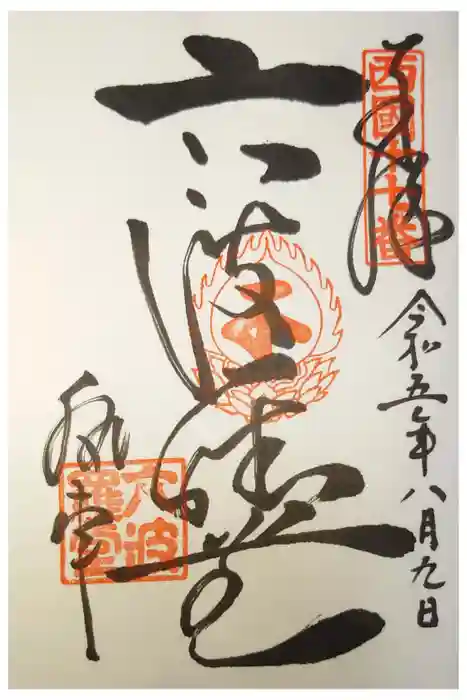 西國十七番
奉拝
令和五年八月九日
六波羅堂
執事
六波
羅堂